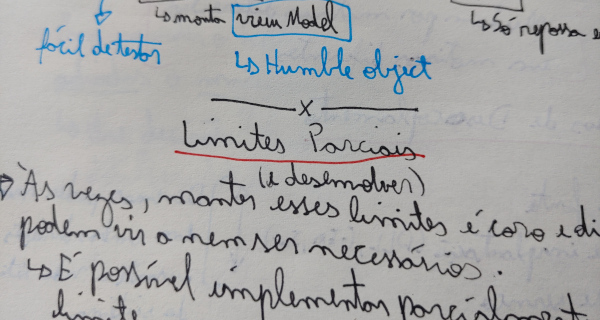 ↳ monta View Model
↳ Só repassa
fácil de testar
↳ Humble object
x
Limites Parciais
(e desenvolver)
Às vezes, manter esses limites é caro e
podem vir a nem ser necessários.
↳ É possível implementar parcialment
limite